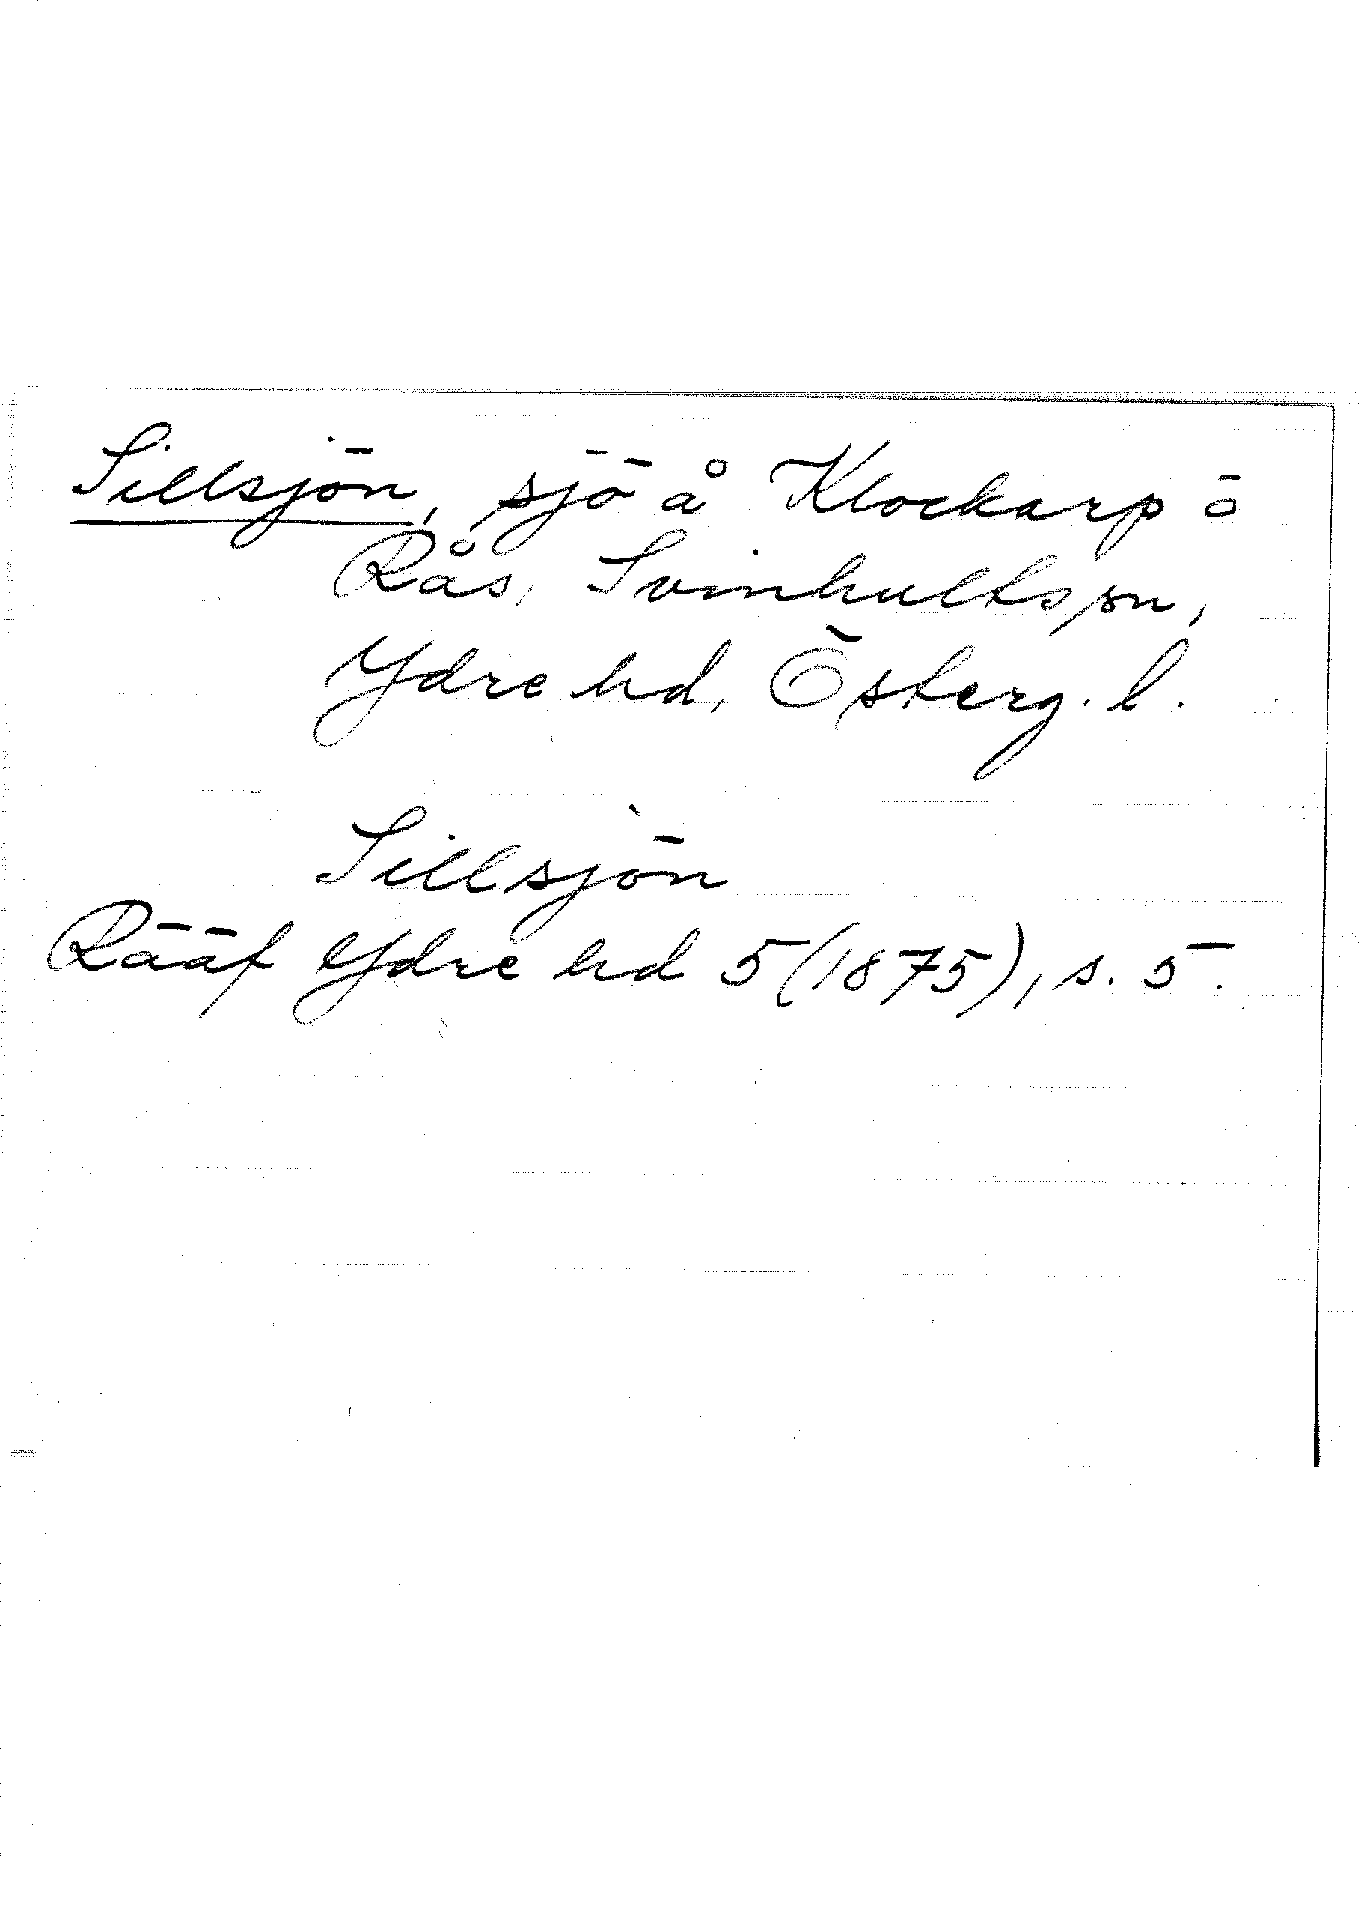 Sillsjön, sjö å Klockarp o
Rås, Svinhults sn,
Ydre hd, Österg. l.
Sillsjön
Rääf Ydre hd 5 (1875), s. 5.